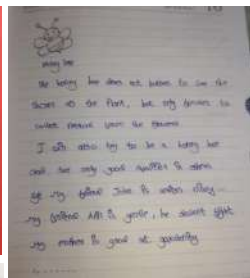 honey bee
the honey bee does not bother to see the
thorns on the plant, but only bothers to
collect nectar from the flowers
I will also try to be a honey bee
and see only good qualities in others
my friend John is
my brother is gentle, he doesn't fight
my mother is good at gardening